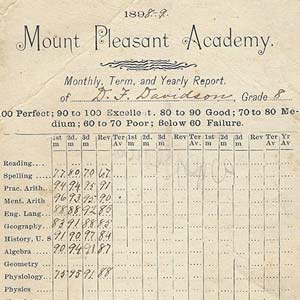 1898-9.
Mount Pleasant Academy.
Monthly, Term, and Yearly Report.
of D. F. Davidson, Grade 8
100 Perfect; 90 to 100 Excellent. 80 to 90 Good; 70 to 80 Me-
dium; 60 to 70 Poor; Below 60 Failure.
1st m 2d. m 3d. m Rev Ter Av 1st m 2d. m 3d. m Rev Ter Av 1st m 2d. m 3d. m Rev Ter
Reading....
Spelling ...... 77 80 70 67
Prac. Arith.. 94 94 75 91
Ment. Arith 96 93 95 90
Eng. Lang... 88 88 92 85
Geography.. 83 91 88 85
History, U. S 91 90 97 84
Algebra ...... 90 94 91 87
Geometry ...
Physiology.. 75 95 91 88
Physics ......